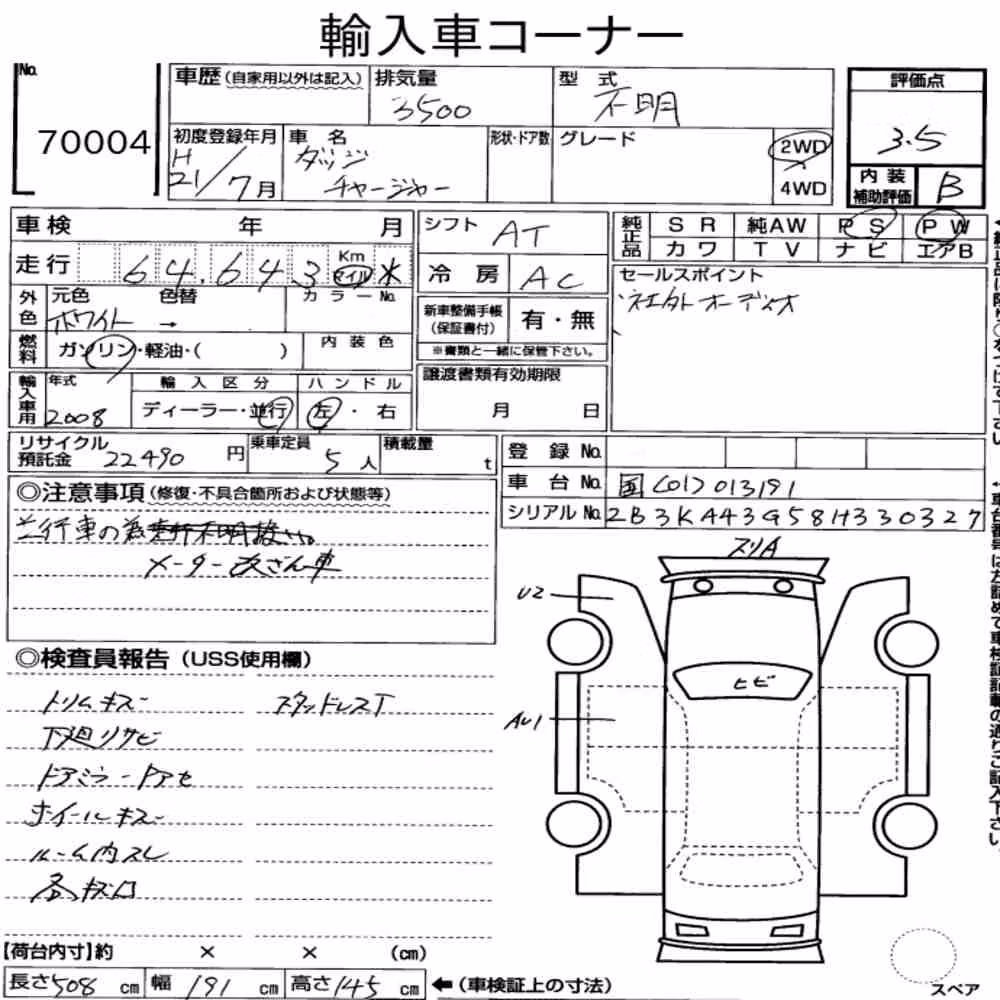 輸入車コーナー
No.
70004
車歴(自家用以外は記入)
排気量
3500
型 式
不明
評価点
3.5
初度登録年月
H
21/7月
車 名
ダッジ
チャージャー
形状・ドア数
グレード
2WD
4WD
内 装
補助評価
B
車検 年 月
走行 64,643 Km マイル ※
シフト AT
冷 房 AC
純正品
S R 純AW P S P W
カワ T V ナビ エアB
外色
元色 色替 カラーNo.
ホワイト →
燃料
ガソリン・軽油・( )
内 装 色
新車整備手帳
(保証書付)
有・無
※書類と一緒に保管下さい。
セールスポイント
社外オーディオ
輸入車用
年式
2008
輸 入 区 分
ディーラー・並行
ハ ン ド ル
左・右
譲渡書類有効期限
月 日
リサイクル
預託金 22490 円
乗車定員
5人
積載量
t
登 録 No.
車 台 No. 国[01]013191
シリアル No. 2B3KA43G58H330327
◎注意事項(修復・不具合箇所および状態等)
並行車の為
メーター改ざん車
◎検査員報告(USS使用欄)
トリムキズ スタッドレスT
下廻りサビ
ドアミラードアセ
ホイールキズ
ルーム内スレ
スリA
U2
ヒビ
AU1
【荷台内寸】約 × × (cm)
長さ508 cm 幅 191 cm 高さ145 cm ←(車検証上の寸法)
スペア
車台番号は左詰めで車検証記載の通りご記入下さい。